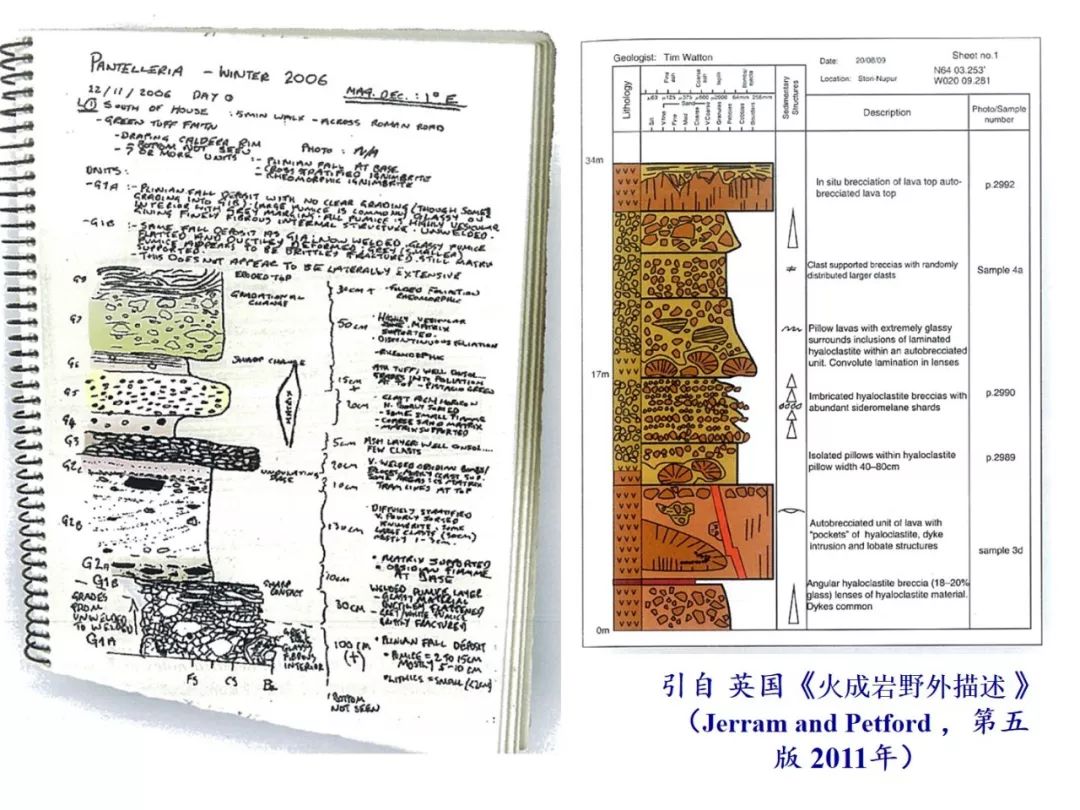 PANTELLERIA - WINTER 2006
22/11/2006 DAY 0
MAG. DEC. : 1° E
L1 SOUTH OF HOUSE : 5MIN WALK - ACROSS ROMAN ROAD
- GREEN TUFF FMTN
- DRAPING CALDERA RIM
- BOTTOM NOT SEEN
- 7 OR MORE UNITS
PHOTO : N/A
UNITS:
- PLINIAN FALL AT BASE
- CROSS STRATIFIED IGNIMBRITE
- RHEOMORPHIC IGNIMBRITE
- G1A :- PLINIAN FALL DEPOSIT WITH NO CLEAR GRADING (THOUGH SOME
GRADING INTO G1B). LARGE PUMICE IS COMMONLY GLASSY ON
INTERIOR WITH GREY MARGIN. ALL PUMICE IS HIGHLY VESICULAR
GIVING FINELY FIBROUS INTERNAL STRUCTURE. UNWELDED.
- G1B :- SAME FALL DEPOSIT AS G1A. NOW WELDED. GLASSY PUMICE
FLATTED AND DUCTILEY DEFORMED. GREY (SMALLER)
PUMICE APPEARS TO BE BRITTLEY FRACTURED. STILL MATRIX
SUPPORTED.
- THIS DOES NOT APPEAR TO BE LATERALLY EXTENSIVE
G8
ERODED TOP
GRADATIONAL
CHANGE
30cm +
FOLIATION
RHEOMORPHIC
G7
50cm
HIGHLY VESICULAR
MATRIX
SUPPORTED
DISCONTINUOUS FOLIATION
- RHEOMORPHIC
G6
SHARP CHANGE
15cm
+
ASH TUFF, WELL CONSOL...
GRADES INTO FOLIATION
AT TOP - PISTACIO GREEN
G5
MATRIX
20cm
POORLY SORTED
- SOME SMALL FIAMME
- COARSE SAND MATRIX
- MATRIX SUPPORTED
G4
5cm
ASH LAYER WELL CONSOL...
FEW CLASTS
G3
UNDULATING
BASE
20cm
V. WELDED OBSIDIAN BOMBS/
G2C
10cm
TRAM LINES AT TOP
G2B
130cm
DIFFUSELY STRATIFIED
V. POORLY SORTED
IGNIMBRITE. SOME
LARGE CLASTS (30cm)
MOSTLY 1-3cm.
G2A
20cm
• MATRIX SUPPORTED
• OBSIDIAN FIAMME
AT BASE
G1B
SHARP
CONTACT
GRADES
FROM
UNWELDED
TO WELDED
30cm
WELDED PUMICE LAYER
- GLASSY MATERIAL
DUCTILEY FLATTENED
- GREY/WHITE PUMICE
BRITTLY FRACTURED
G1A
GREY
GLASSY
FIBROUS
INTERIOR
100cm
(+)
• PLINIAN FALL DEPOSIT
• PUMICE = 2 TO 15cm
MOSTLY 5-10 cm
• LITHICS = SMALL (<2cm)
FS CS B
BOTTOM
NOT SEEN
Geologist: Tim Watton
Date: 20/08/09
Location: Stori-Nupur
Sheet no.1
N64 03.253'
W020 09.281
Lithology
Fine ash
Coarse ash
lapilli
Bombs/
Sand
Silt
V.fine
Fine
Med
Coarse
V.Coarse
Granules
Pebbles
Cobbles
Boulders
Sedimentary
Structures
Description
Photo/Sample
number
34m
In situ brecciation of lava top auto-
brecciated lava top
p.2992
Clast supported breccias with randomly
distributed larger clasts
Sample 4a
Pillow lavas with extremely glassy
surrounds inclusions of laminated
hyaloclastite within an autobrecciated
unit. Convolute lamination in lenses
17m
Imbricated hyaloclastite breccias with
abundant sideromelane shards
p.2990
Isolated pillows within hyaloclastite
pillow width 40–80cm
p.2989
Autobrecciated unit of lava with
"pockets" of hyaloclastite, dyke
intrusion and lobate structures
sample 3d
Angular hyaloclastite breccia (18–20%
glass) lenses of hyaloclastite material.
Dykes common
0m
引自 英国《火成岩野外描述 》
（Jerram and Petford ， 第五
版 2011年）